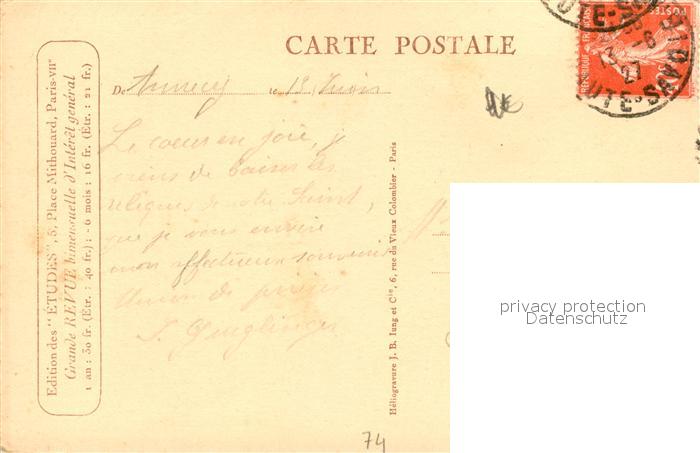 CARTE POSTALE
De Annecy le 12 Juin
Le coeur en joie, je
viens de baiser les
reliques de notre Saint,
que je vous envoie
mon affectueux souvenir
Union de prières
Edition des "ÉTUDES", 5, Place Mithouard, Paris-VIIe
Grande REVUE bimensuelle d'Intérêt général
1 an : 30 fr. (Étr. : 40 fr.) : - 6 mois : 16 fr. (Étr. : 21 fr.)
Héliogravure J. B. Iung et Cie, 6, rue du Vieux Colombier - Paris
POSTES
REPUBLIQUE FRANÇAISE
UTE-SAVOIE
privacy protection
Datenschutz
74